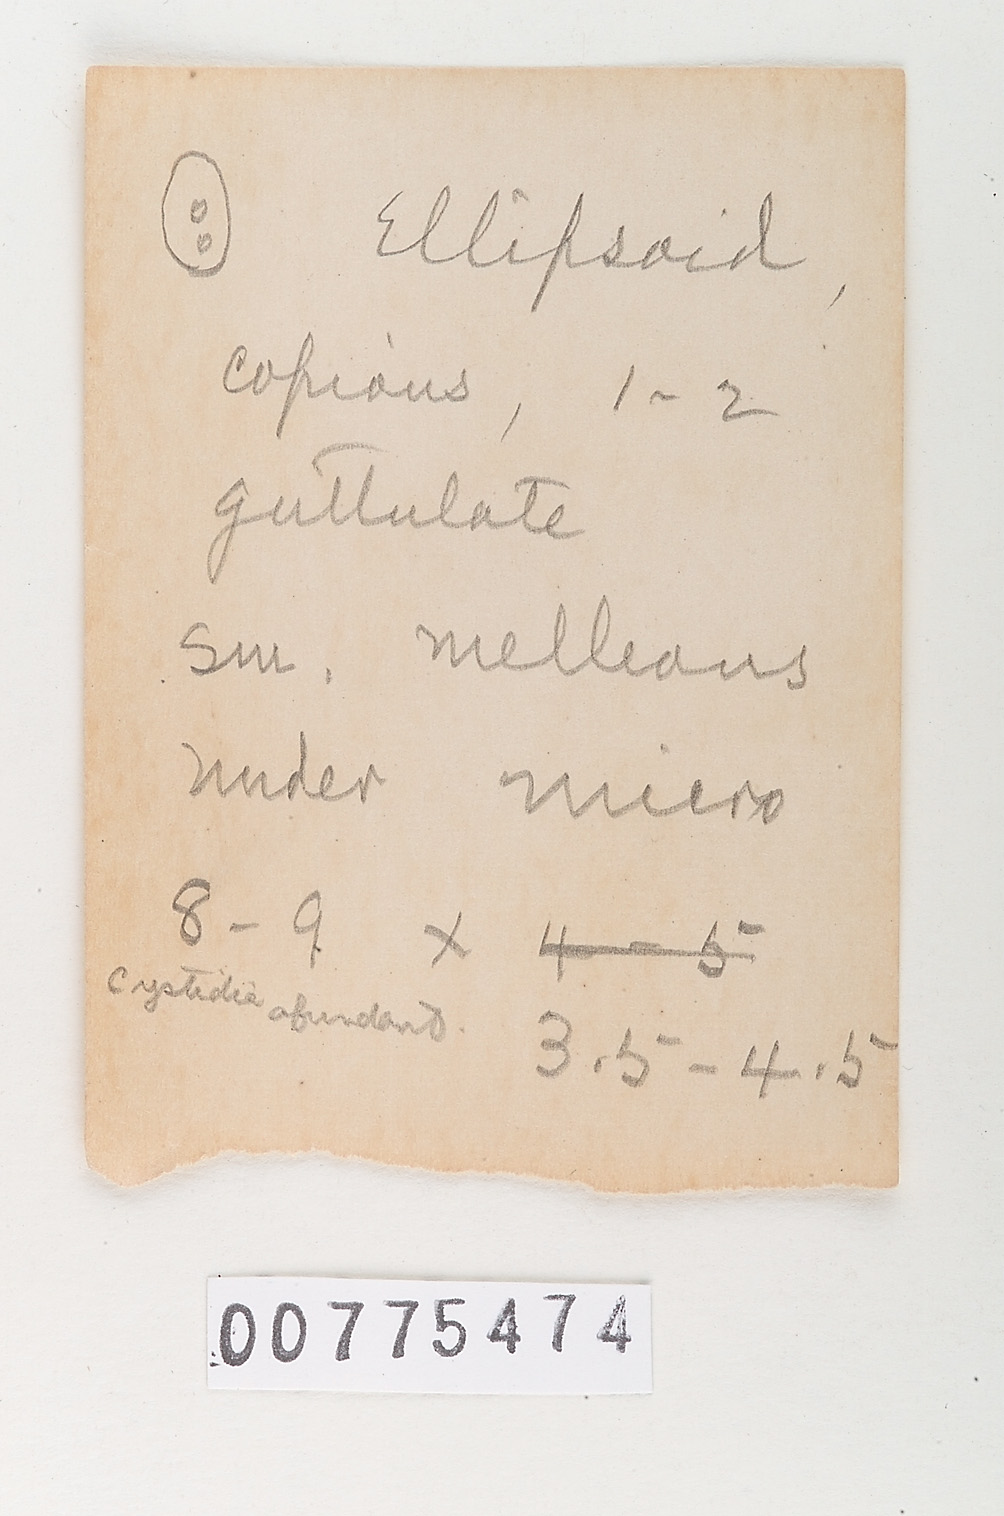 Ellipsoid,
copious, 1-2
guttulate
sm. melleous
under micro
8-9 x 4-5
Cystidia abundant.
3.5-4.5
00775474